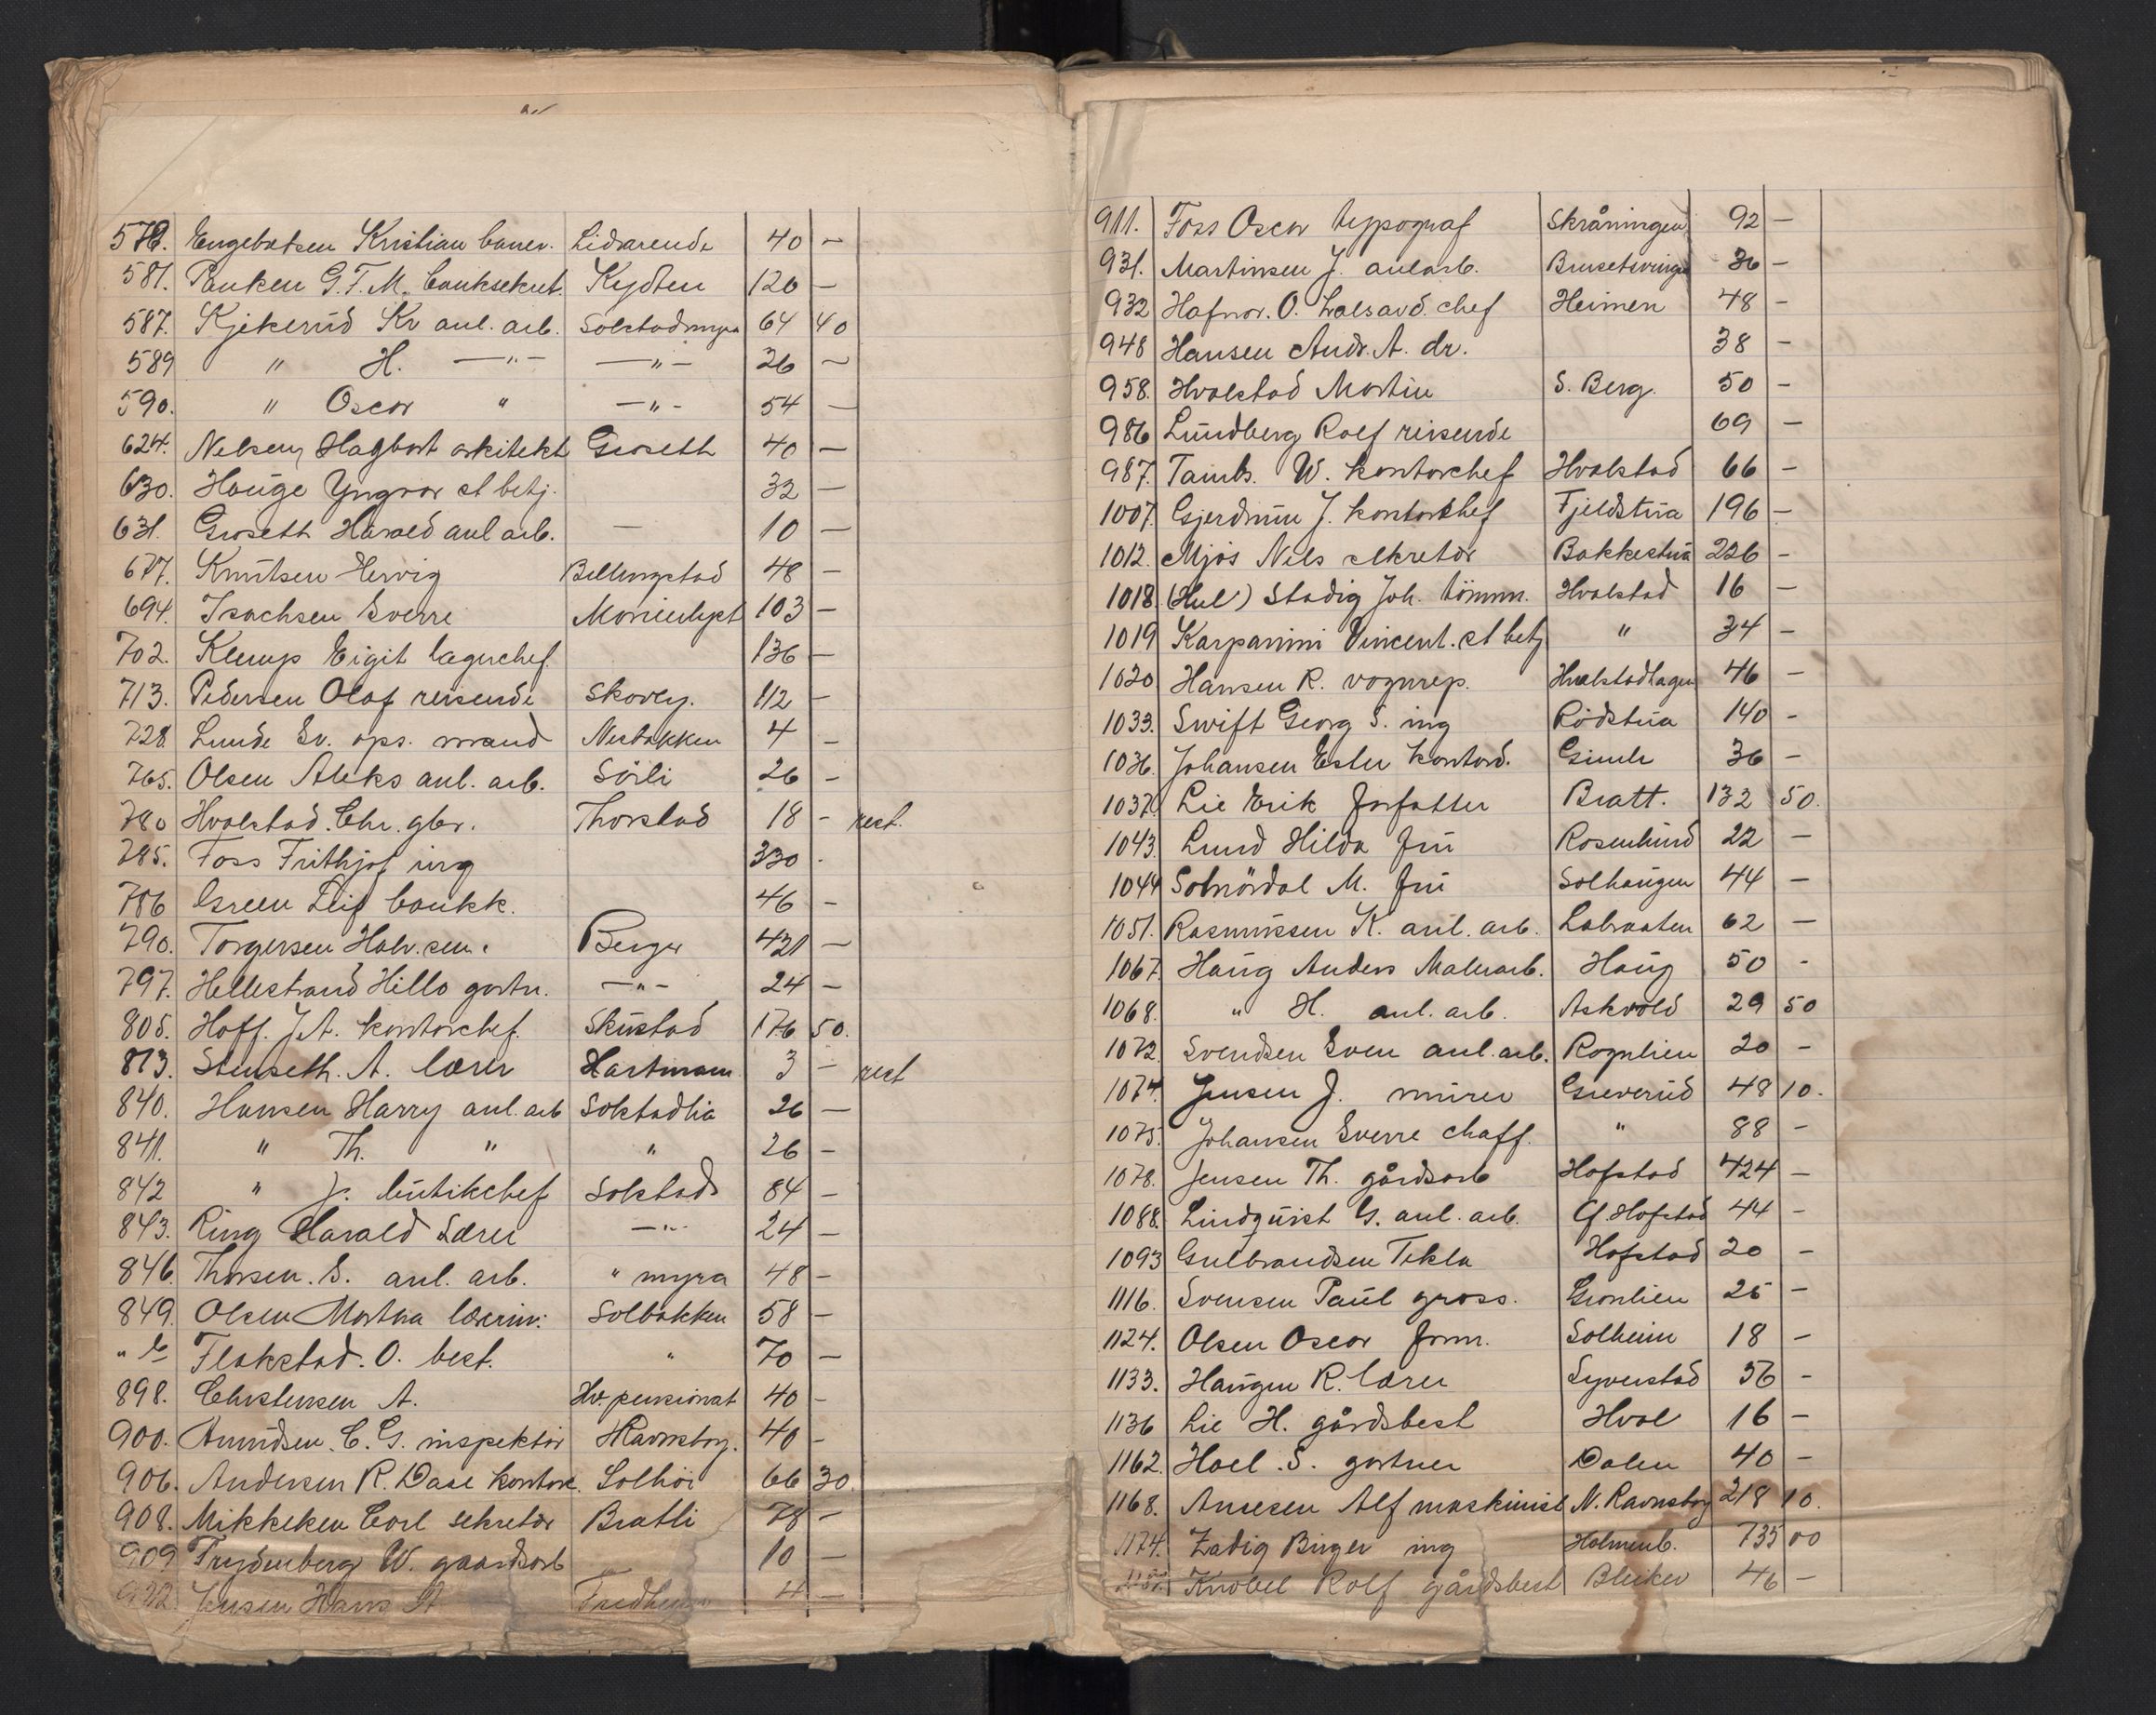 578. Engebretsen Kristian banev. Lidvarende 40 -
581. Panken G.F.M. banksekret. Kydten 120 -
587. Kjekerud Kr anl. arb. Solstadmyra 64 40
589 " H. —"— —"— 26 -
590. " Oscar " —"— 54 -
624. Nelsen, Hagbart arkitekt Groseth 40 -
630. Hauge Yngvar st betj. 32 -
631. Groseth Harald anl arb. — 10 -
677. Knutsen Hervig Billingstad 48 -
694. Isachsen Sverre Marienlyst 103 -
702. Klemp Eigil lagerchef. 136 -
713. Pedersen Olaf reisende Skovly. 112 -
728. Lunde Sv. ops. mand Nesbakken 4 -
765. Olsen Aleks anl. arb. Sörli 26 -
780 Hvalstad. Chr. gbr. Thorstad 18 - rest.
785. Foss Frithjof ing 330 -
786 Green Leif bankk. 46 -
790. Torgersen Halv. sen. Berger 421 -
797. Hellestrand Hillo gartn. —"— 24 -
805. Hoff. J.A. kontorchef. Skustad 176 50.
813. Stenseth. A. lærer Hartmann 3 - rest
840. Hansen Harry anl. arb Solstadlia 26 -
841. " Th. " " 26 -
842 " J. butikchef Solstad 84 -
843. Ring Harald Lærer —"— 24 -
846. Thorsen. S. anl. arb. " myra 48 -
849. Olsen Martha lærerin: Solbakken 58 -
" b Flakstad. O. best. " 70 -
898. Christensen A. Hv. pensionat 40 -
900. Amundsen. C. G. inspektör Ravnsborg. 40 -
906. Andersen R. Dase kontorc. Solhöi 66 30.
908. Mikkelsen Carl sekretær Bratli 78 -
909 Frydenberg W. gaardsarb 10 -
Jensen Hans A Fredheim 4 -
911. Foss Oscar typograf Skråningen 92 -
931. Martinsen J. anlarb. Brusetsvingen 36 -
932 Hafnor. O. Salsavd. chef Heimen 48 -
948 Hansen Andr. A. dr. 38 -
958. Hvalstad Martin S. Berg. 50 -
986 Lundberg Rolf reisende 69 -
987. W. kontorchef Hvalstad 66 -
1007. Gjerdrum J. kontorchef Fjeldstua 196 -
1012. Mjös Nels sekretær Bakkestua 226 -
1018 (Hul) Stadig Joh. tömm. Hvalstad 16 -
1019 Karpanini Vincent. st betj " 34 -
1020 Hansen R. vognrep. Hvalstadhagen 46 -
1033. Swift Georg S. ing Rödstua 140 -
1036. Johansen Ester kontord. Gimle 36 -
1037. Lie Erik forfatter Bratt. 132 50.
1043. Lund Hilda fru Rosenlund 22 -
1044 Solnördal M. fru Solhaugen 44 -
1051. Rasmussen K. anl. arb. Labraaten 62 -
1067. Haug Anders Malerarb. Haug 50 -
1068. " H. anl. arb. Askvold 29 50
1072. Svendsen Sven anl. arb. Rognlien 20 -
1074. Jensen J. murer Greverud 48 10.
1075. Johansen Sverre chaff. " 88 -
1078. Jensen Th. gårdsarb Hofstad 424 -
1088. Lindquist G. anl. arb. Gl. Hofstad 44 -
1093 Gulbrandsen Tekla Hofstad 20 -
1116. Svensen Paul gross. Granlien 25 -
1124. Olsen Oscar form. Solheim 18 -
1133. Haugen R. lærer Syverstad 56 -
1136 Lie H. gårdsbest Hval 16 -
1162. Hoel. S. gartner Dalen 40 -
1168. Ansesen Alf maskinist N. Ravnsborg 218 10.
1174. Zadig Birger ing Holmenb. 735 00
Knobel Rolf gårdsbest Bleiker 46 -